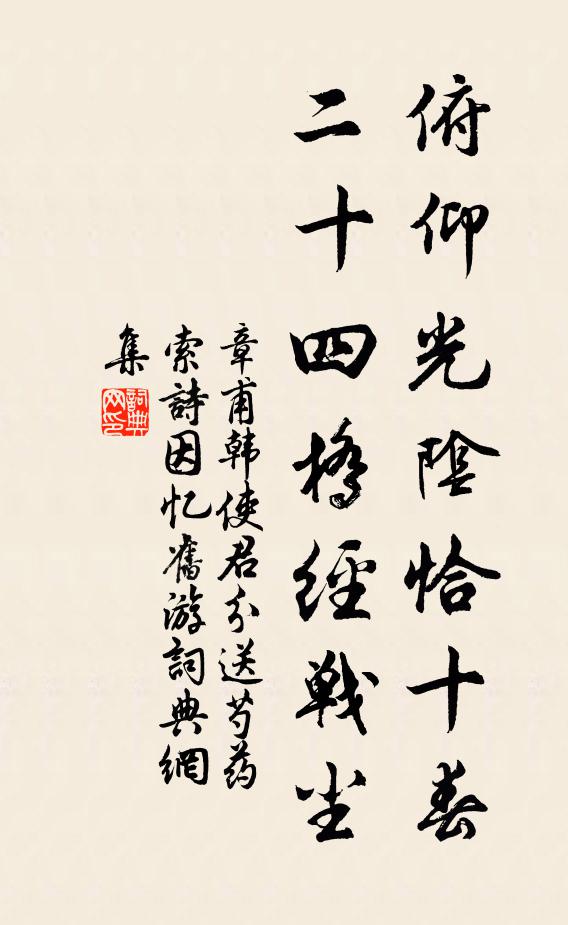 俯仰光陰恰十春
二十四橋經戰尘
章甫韩使君分送芍药
索詩因忆舊游詞典網
集
詞典
网印